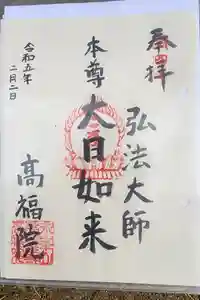 奉拝
弘法大師
本尊 大日如来
令和五年
二月二日
高福院